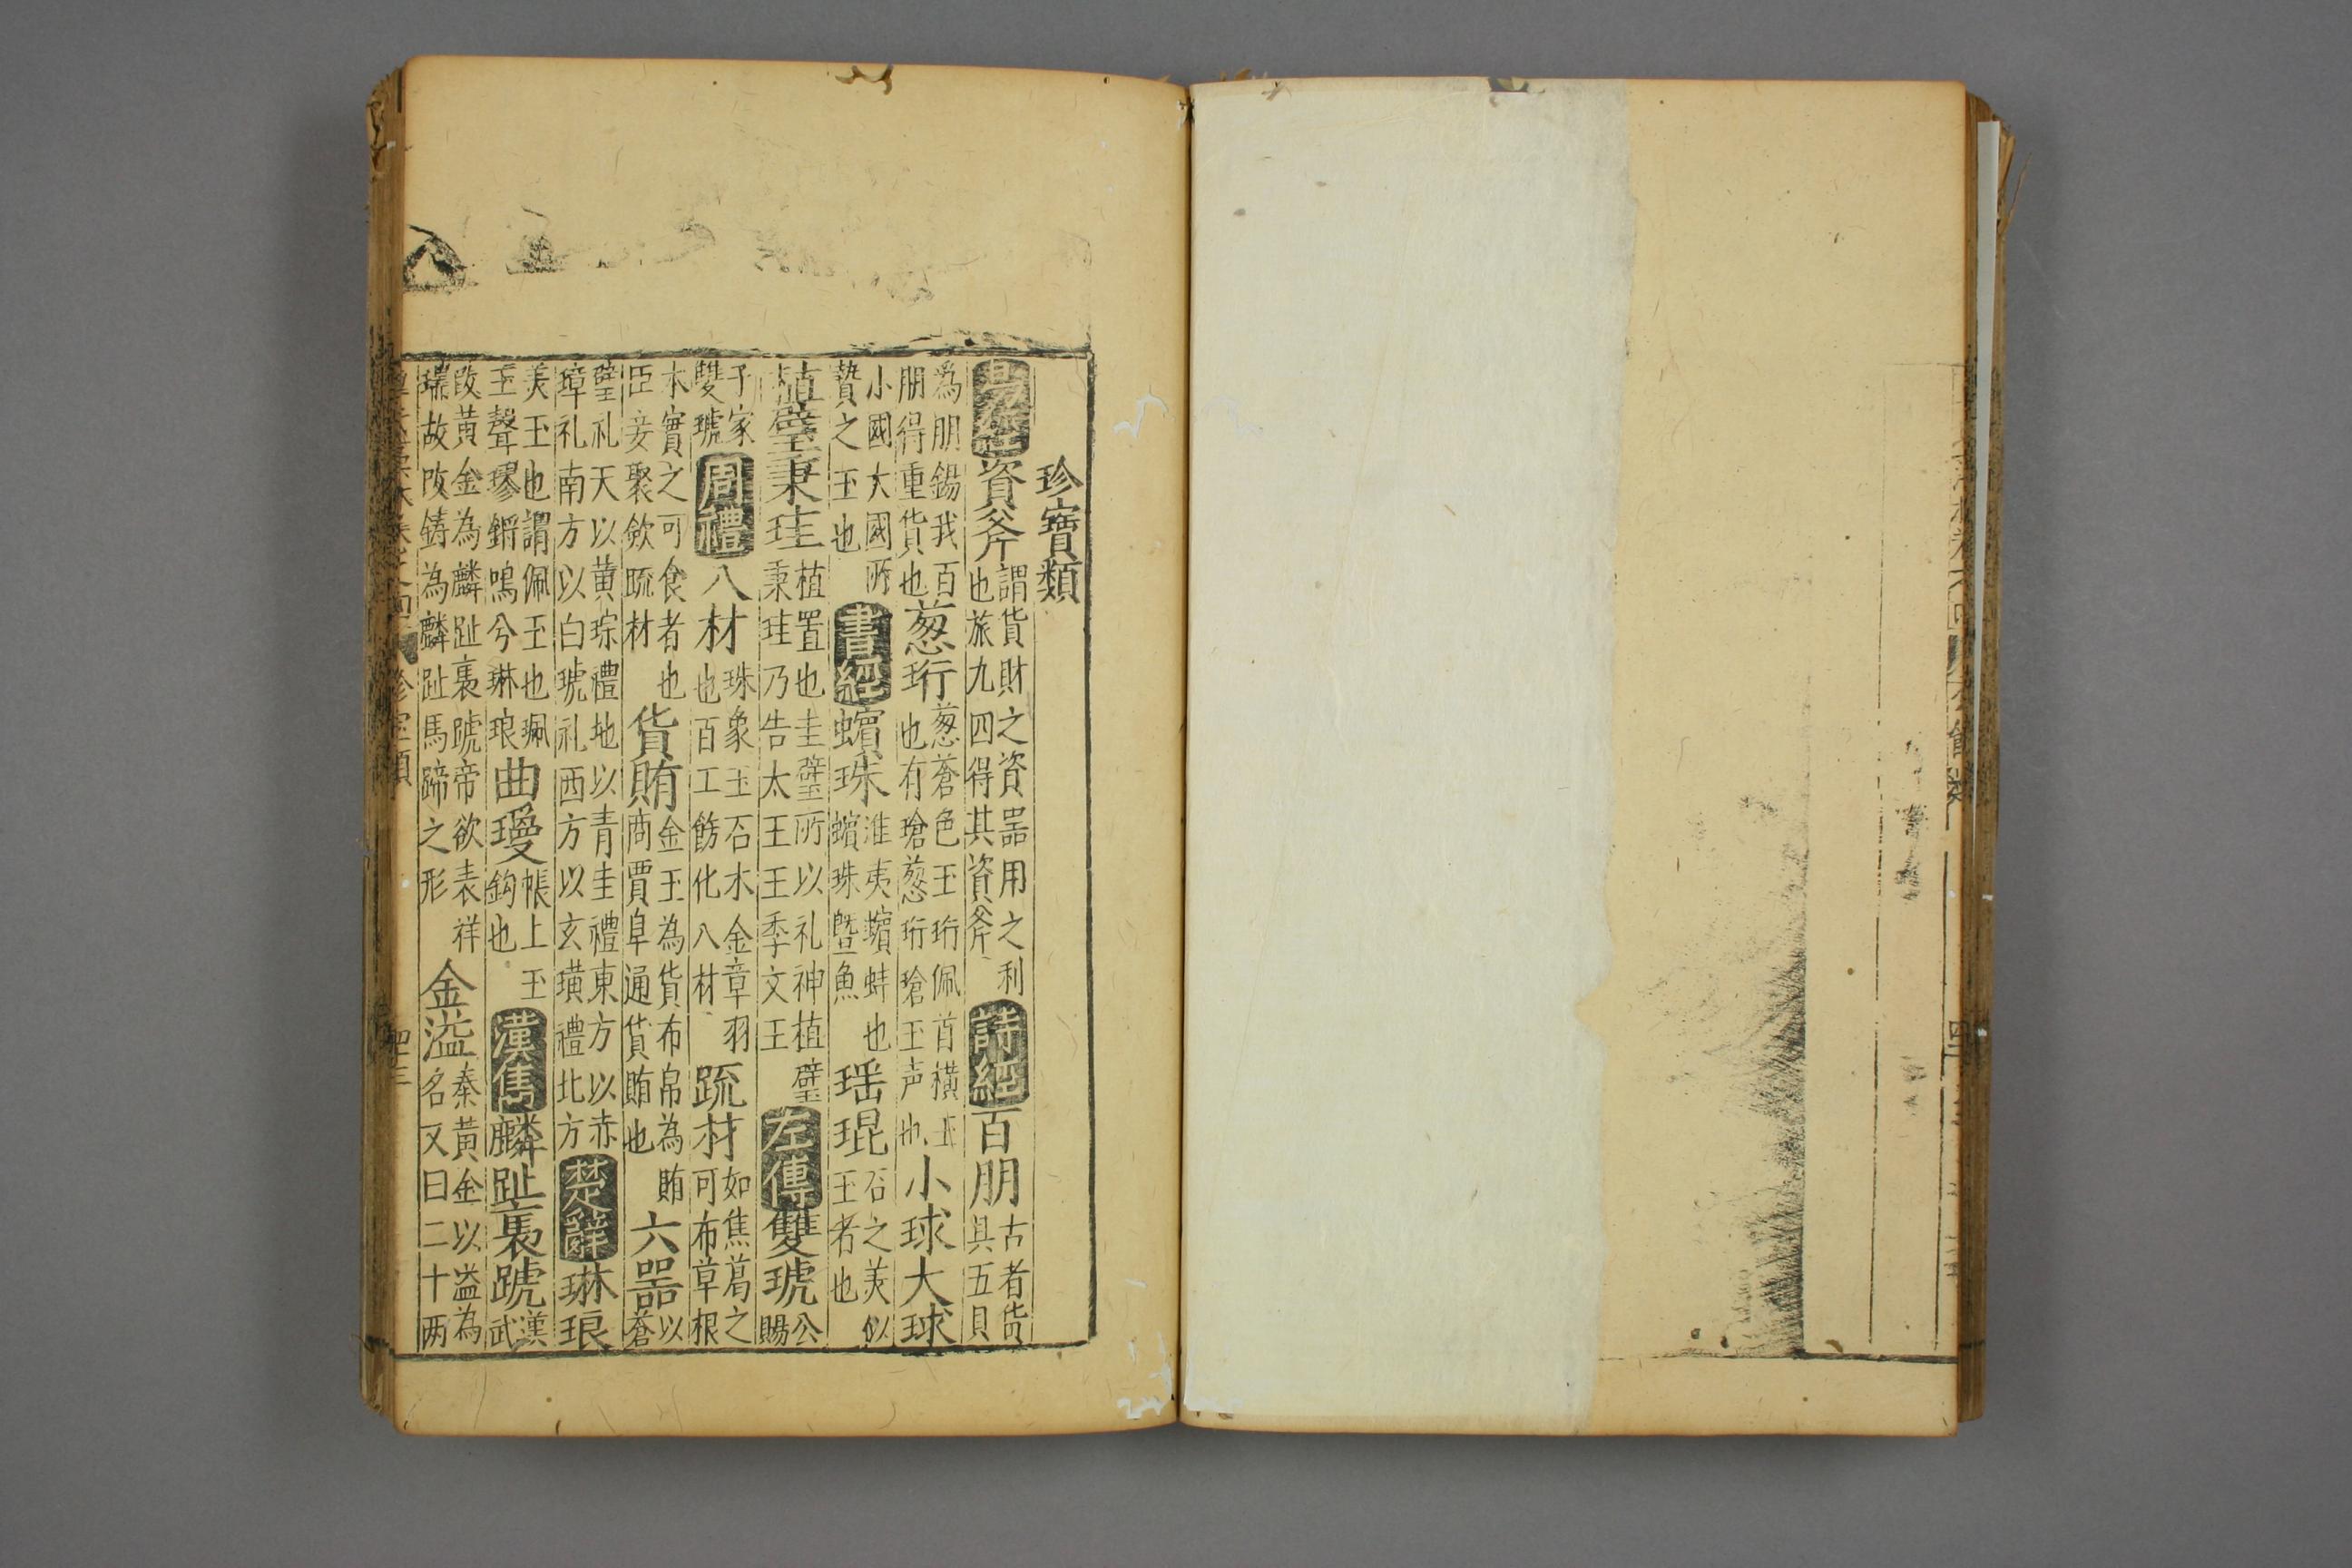 珍寳類
易經資斧謂貨財之資噐用之利也旅九四得其資斧詩經百朋古者貨具五貝
為朋錫我百朋得重貨也葱珩葱蒼色玉珩佩首橫玉也有瑲葱珩瑲玉声也小球大球
小國大國所贄之玉也書經蠙珠淮夷蠙蚌也蠙珠曁魚瑶琨石之美似玉者也
植璧秉珪植置也圭璧所以礼神植璧秉珪乃告太王王季文王左傳雙琥公賜
子家雙琥周禮八材珠象玉石木金章羽也百工餝化八材疏材如焦葛之可布草根
木實之可食者也臣妾聚歛疏材貨賄金玉為貨布帛為賄商賈阜通貨賄也六噐以蒼
璧礼天以黄琮禮地以青圭禮東方以赤璋礼南方以白琥礼西方以玄璜禮北方楚辭琳琅
美玉也謂佩玉也珮玉聲璆鏘鳴兮琳琅曲璦帳上玉鈎也漢雋麟趾褭蹏漢武
改黄金為麟趾褭蹏帝欲表祥瑞故改鋳為麟趾馬蹄之形金溢秦黄金以溢為名又曰二十两
珍宝類
四三